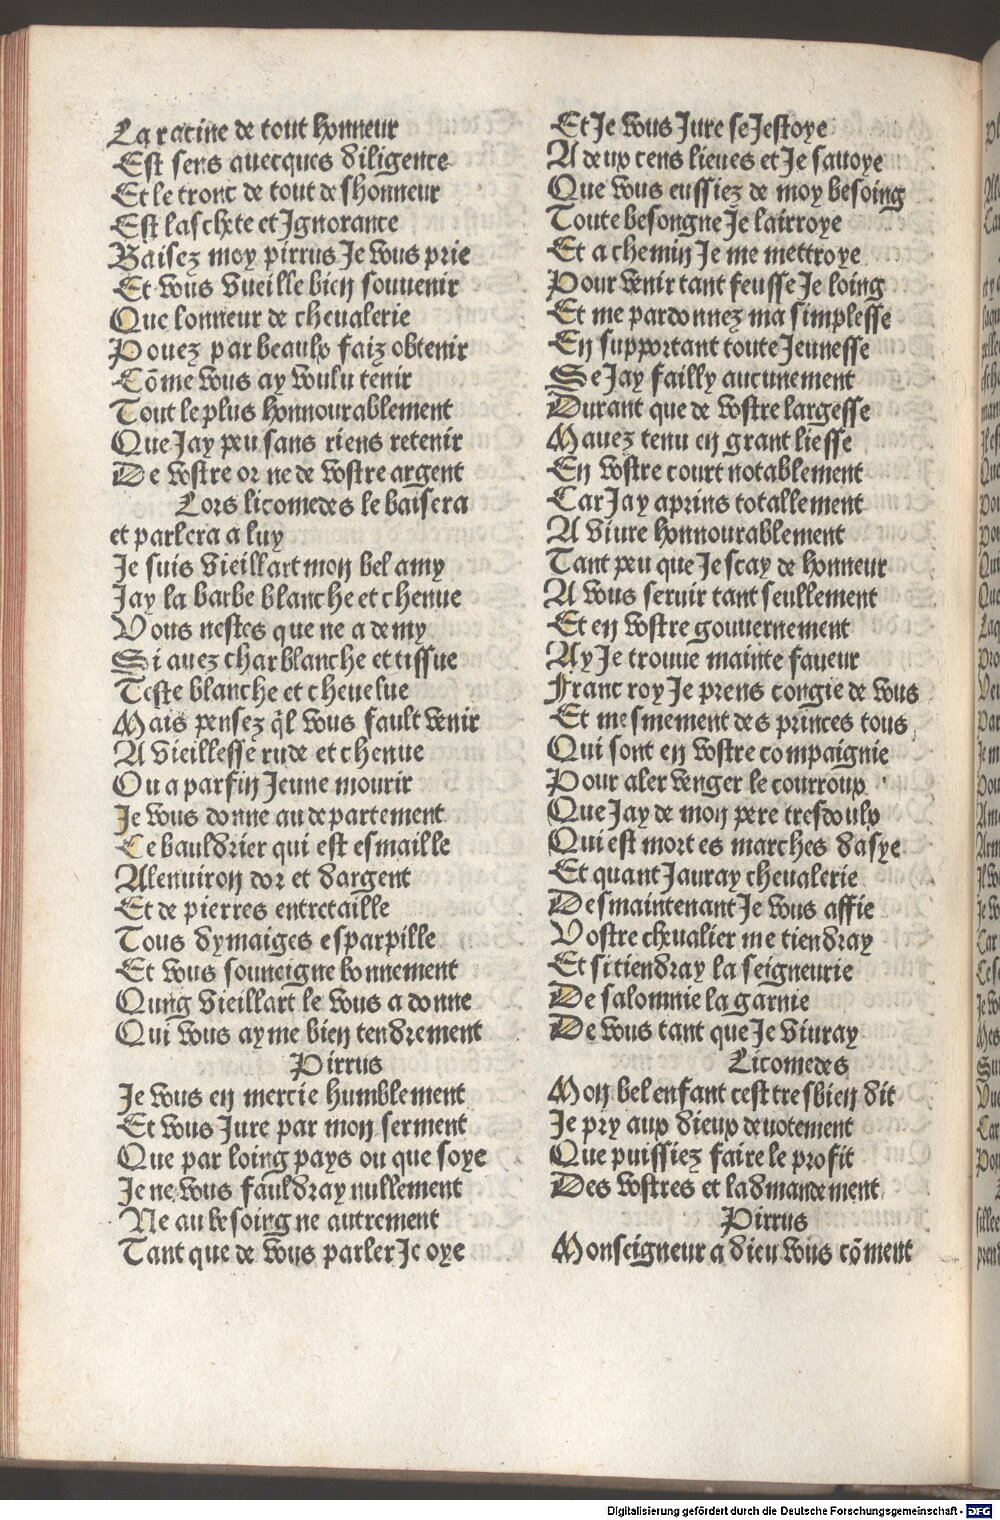 La racine de tout honneur
Est sens auecques diligence
Et le tronc de tout deshonneur
Est laschete et Ignorance
Baisez moy pirrus Je vous prie
Et vous vueille bien souuenir
Que lonneur de cheualerie
Pouez par beaulx faiz obtenir
Cõme vous ay voulu tenir
Tout le plus honnourablement
Que Jay peu sans riens retenir
De vostre or ne de vostre argent
Lors licomedes le baisera
et parlera a luy
Je suis vieillart mon bel amy
Jay la barbe blanche et chenue
Vous nestes que ne a demy
Si auez char blanche et tissue
Teste blanche et cheuelue
Mais pensez q̃l vous fault venir
A vieillesse rude et chenue
Ou a parfin Jeune mourir
Je vous donne au departement
Ce bauldrier qui est esmaille
Alenuiron dor et dargent
Et de pierres entretaille
Tous dymaiges esparpille
Et vous souueigne bonnement
Qung vieillart le vous a donne
Qui vous ayme bien tendrement
Pirrus
Je vous en mercie humblement
Et vous Jure par mon serment
Que par loing pays ou que soye
Je ne vous fauldray nullement
Ne au besoing ne autrement
Tant que de vous parler Je oye
Et Je vous Jure se Jestoye
A deux cens lieues et Je sauoye
Que vous eussiez de moy besoing
Toute besongne Je lairroye
Et a chemin Je me mettroye
Pour venir tant feusse Je loing
Et me pardonnez ma simplesse
En supportant toute Jeunesse
Se Jay failly aucunement
Durant que de vostre largesse
Mauez tenu en grant liesse
En vostre court notablement
Car Jay aprins totallement
A viure honnourablement
Tant peu que Je scay de honneur
A vous seruir tant seullement
Et en vostre gouuernement
Ay Je trouue mainte faueur
Franc roy Je prens congie de vous
Et mesmement des princes tous
Qui sont en vostre compaignie
Pour aler venger le courroux
Que Jay de mon pere tresdoulx
Qui est mort es marches dasye
Et quant Jauray cheualerie
Desmaintenant Je vous affie
Vostre cheualier me tiendray
Et si tiendray la seigneurie
De salomnie la garnie
De vous tant que Je viuray
Licomedes
Mon bel enfant cest tresbien dit
Je pry aux dieux deuotement
Que puissiez faire le profit
Des vostres et ladmandement
Pirrus
Monseigneur a dieu vous cõment
Digitalisierung gefördert durch die Deutsche Forschungsgemeinschaft - DFG